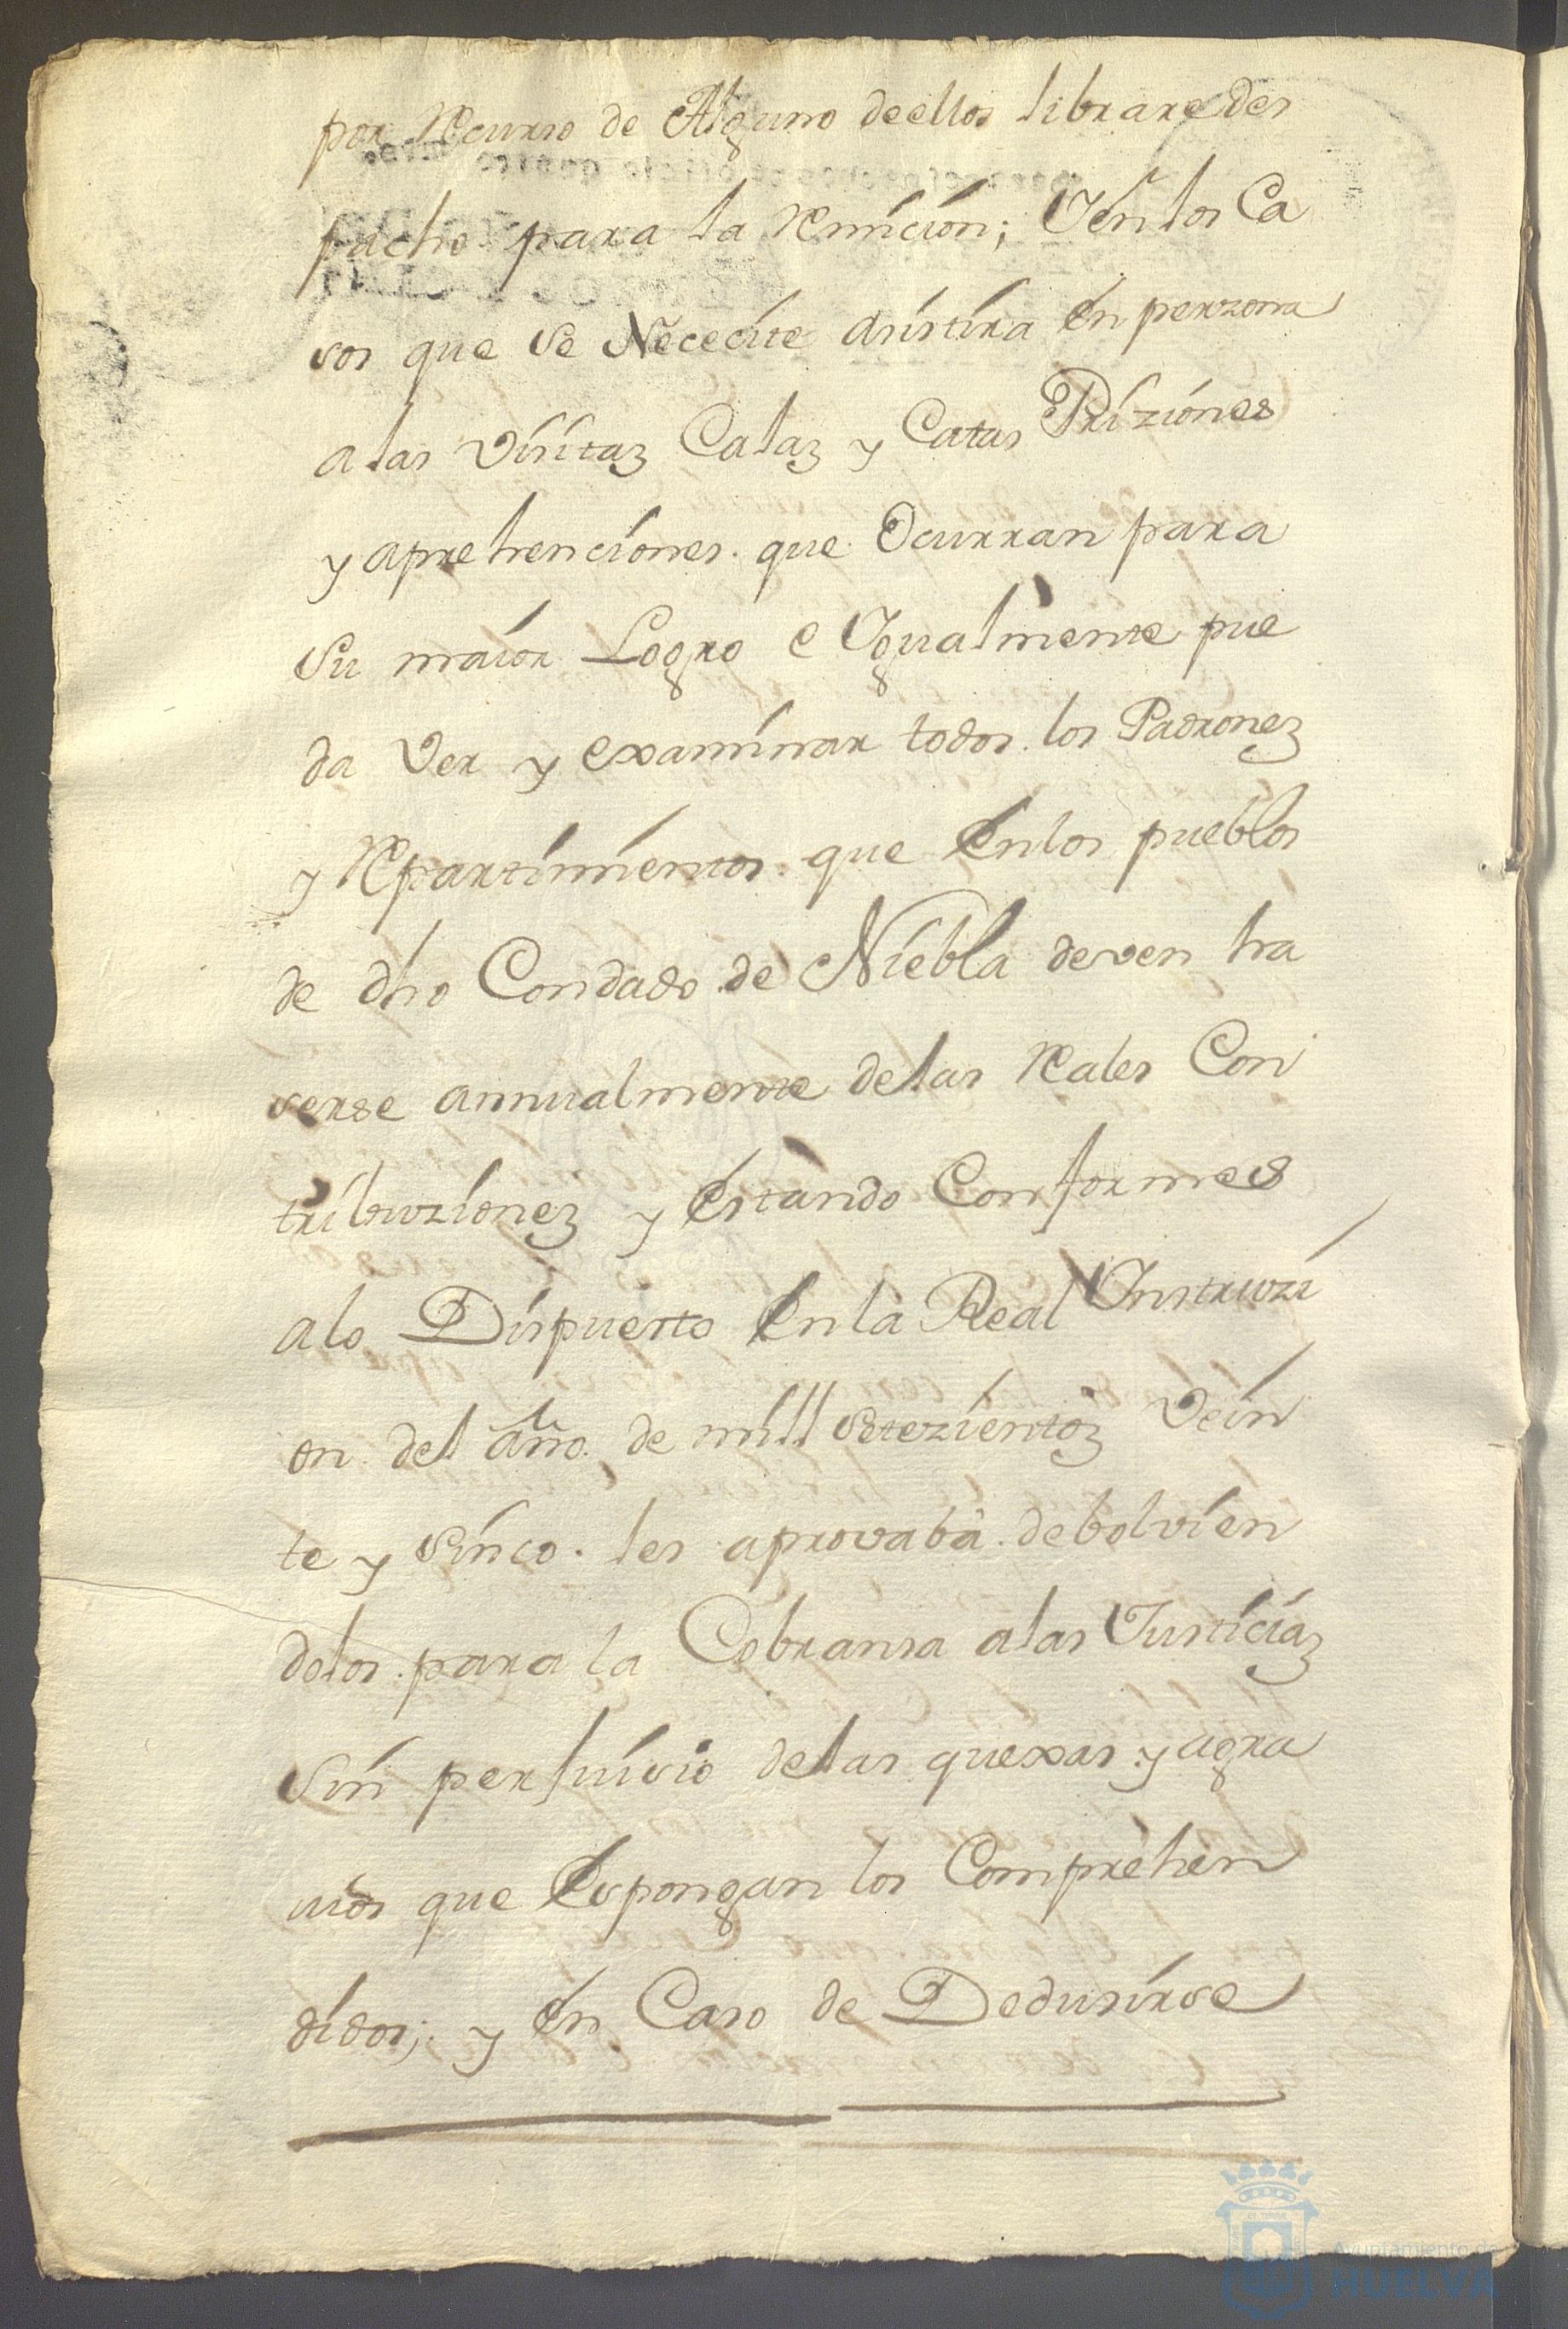 por Recurso de Alguno deellos librare des
pacho para la Remicion; Yen los Ca
sos que se Nececite asistira en perzona
alas Visitaz Calaz y Catas Priziones
y aprehenciones. que Ocurran para
Su maior Logro e Ygualmente pue
da Ver y examinar todos los Padronez
y Repartimientos que enlos pueblos
de dho Condado de Niebla deven ha
serse annualmente delas Reales Con
tribuzionez y estando Conformes
alo Dispuesto en la Real Ynstruzi
on del año de mill setezientoz Vein
te y Sinco. les aprovaba. debolvien
dolos para la Cobransa alas Justiciaz
Sin perjuisio delas quexas y agra
vios que espongan los Comprehen
didos; y en Caso de Dedusirse
Ayuntamiento de
HUELVA